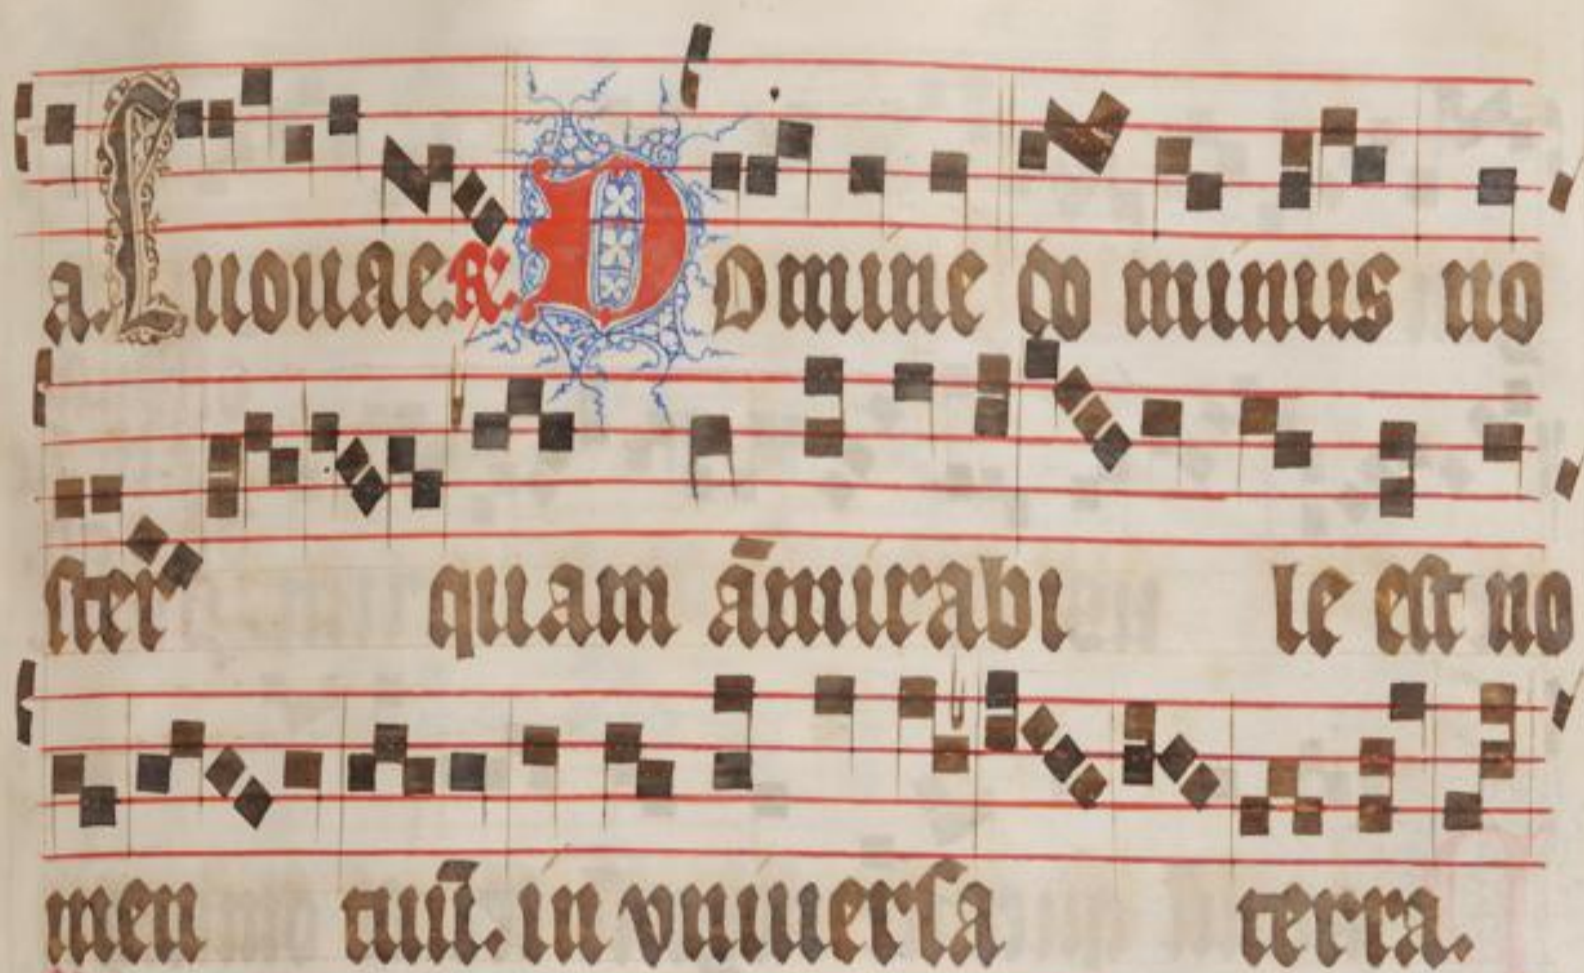 a. Euouae. R. Domine do minus no
ster quam āmirabi le est no
men tuū. in vniuersa terra.